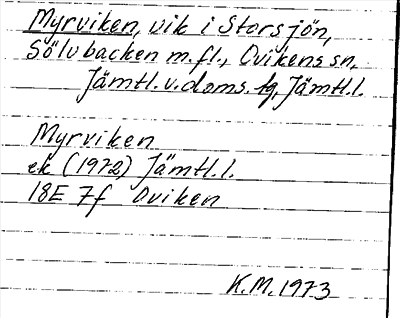 Myrviken, vik i Storsjön,
Sölvbacken m.fl., Ovikens sn,
Jämtl.v.doms.tg, Jämtl.l.
Myrviken
ek (1972) Jämtl.l.
18E 7f Oviken
K.M.1973